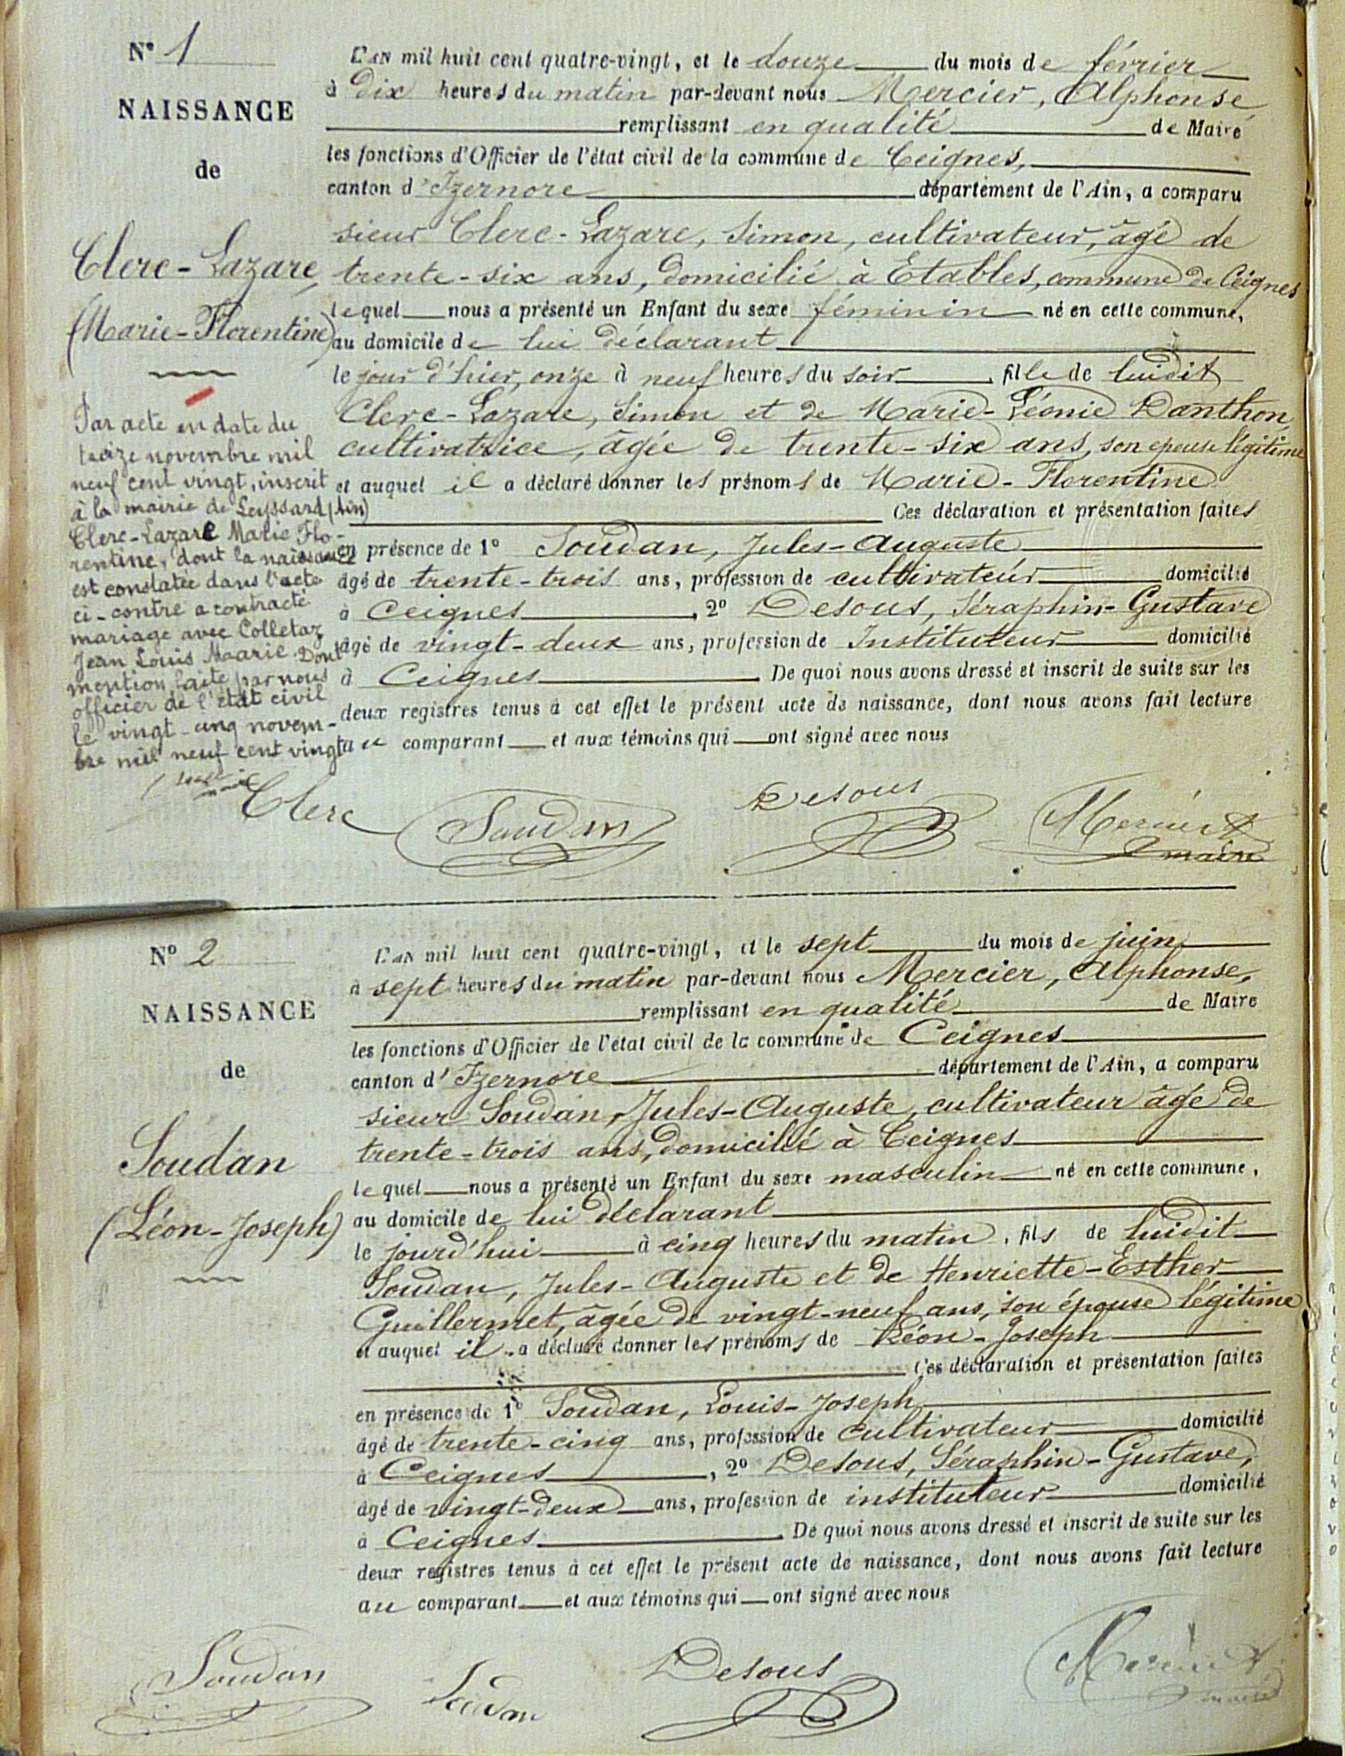 N° 1
NAISSANCE
de
Clerc-Lazare,
(Marie-Florentine)
Par acte en date du
treize novembre mil
neuf cent vingt, inscrit
à la mairie de Leyssard (Ain)
Clerc-Lazare Marie Flo-
rentine, dont la naissance
est constatée dans l'acte
ci-contre a contracté
mariage avec Colletaz
Jean Louis Maarie. Dont
mention faite par nous
officier de l'état civil
le vingt-cinq novem-
bre mil neuf cent vingt
L'AN mil huit cent quatre-vingt, et le douze du mois de février
à Dix heures du matin par-devant nous Mercier, Alphonse
remplissant en qualité de Maire
les fonctions d'Officier de l'état civil de la commune de Ceignes,
canton d'Izernore département de l'Ain, a comparu
sieur Clerc-Lazare, Simon, cultivateur, âgé de
trente-six ans, domicilié à Etables, commune de Ceignes
lequel nous a présenté un Enfant du sexe féminin né en cette commune,
au domicile de lui déclarant
le jour d'hier, onze à neuf heures du soir, fille de luidit
Clerc-Lazare, Simon et de Marie-Léonie Danthon,
cultivatrice, âgée de trente-six ans, son épouse légitime
et auquel il a déclaré donner les prénoms de Marie-Florentine
Ces déclaration et présentation faites
en présence de 1° Soudan, Jules-Auguste
âgé de trente-trois ans, profession de cultivateur domicilié
à Ceignes, 2° Desous, Séraphin-Gustave
âgé de vingt-deux ans, profession de Instituteur domicilié
à Ceignes De quoi nous avons dressé et inscrit de suite sur les
deux registres tenus à cet effet le présent acte de naissance, dont nous avons fait lecture
au comparant et aux témoins qui ont signé avec nous
Clerc Soudan Desous Mercier A
maire
N° 2
NAISSANCE
de
Soudan
(Léon-Joseph)
L'AN mil huit cent quatre-vingt, et le sept du mois de juin
à sept heures du matin par-devant nous Mercier, Alphonse,
remplissant en qualité de Maire
les fonctions d'Officier de l'état civil de la commune de Ceignes
canton d'Izernore département de l'Ain, a comparu
sieur Soudan, Jules-Auguste, cultivateur âgé de
trente-trois ans, domicilié à Ceignes
lequel nous a présenté un Enfant du sexe masculin né en cette commune,
au domicile de lui déclarant
le jourd'hui à cinq heures du matin, fils de luidit
Soudan, Jules-Auguste et de Henriette-Esther
Guillermet, âgée de vingt-neuf ans, son épouse légitime
et auquel il a déclaré donner les prénoms de Léon-Joseph
Ces déclaration et présentation faites
en présence de 1° Soudan, Louis-Joseph
âgé de trente-cinq ans, profession de cultivateur domicilié
à Ceignes, 2° Desous, Séraphin-Gustave,
âgé de vingt-deux ans, profession de instituteur domicilié
à Ceignes. De quoi nous avons dressé et inscrit de suite sur les
deux registres tenus à cet effet le présent acte de naissance, dont nous avons fait lecture
au comparant et aux témoins qui ont signé avec nous
Soudan Soudan Desous Mercier A
maire